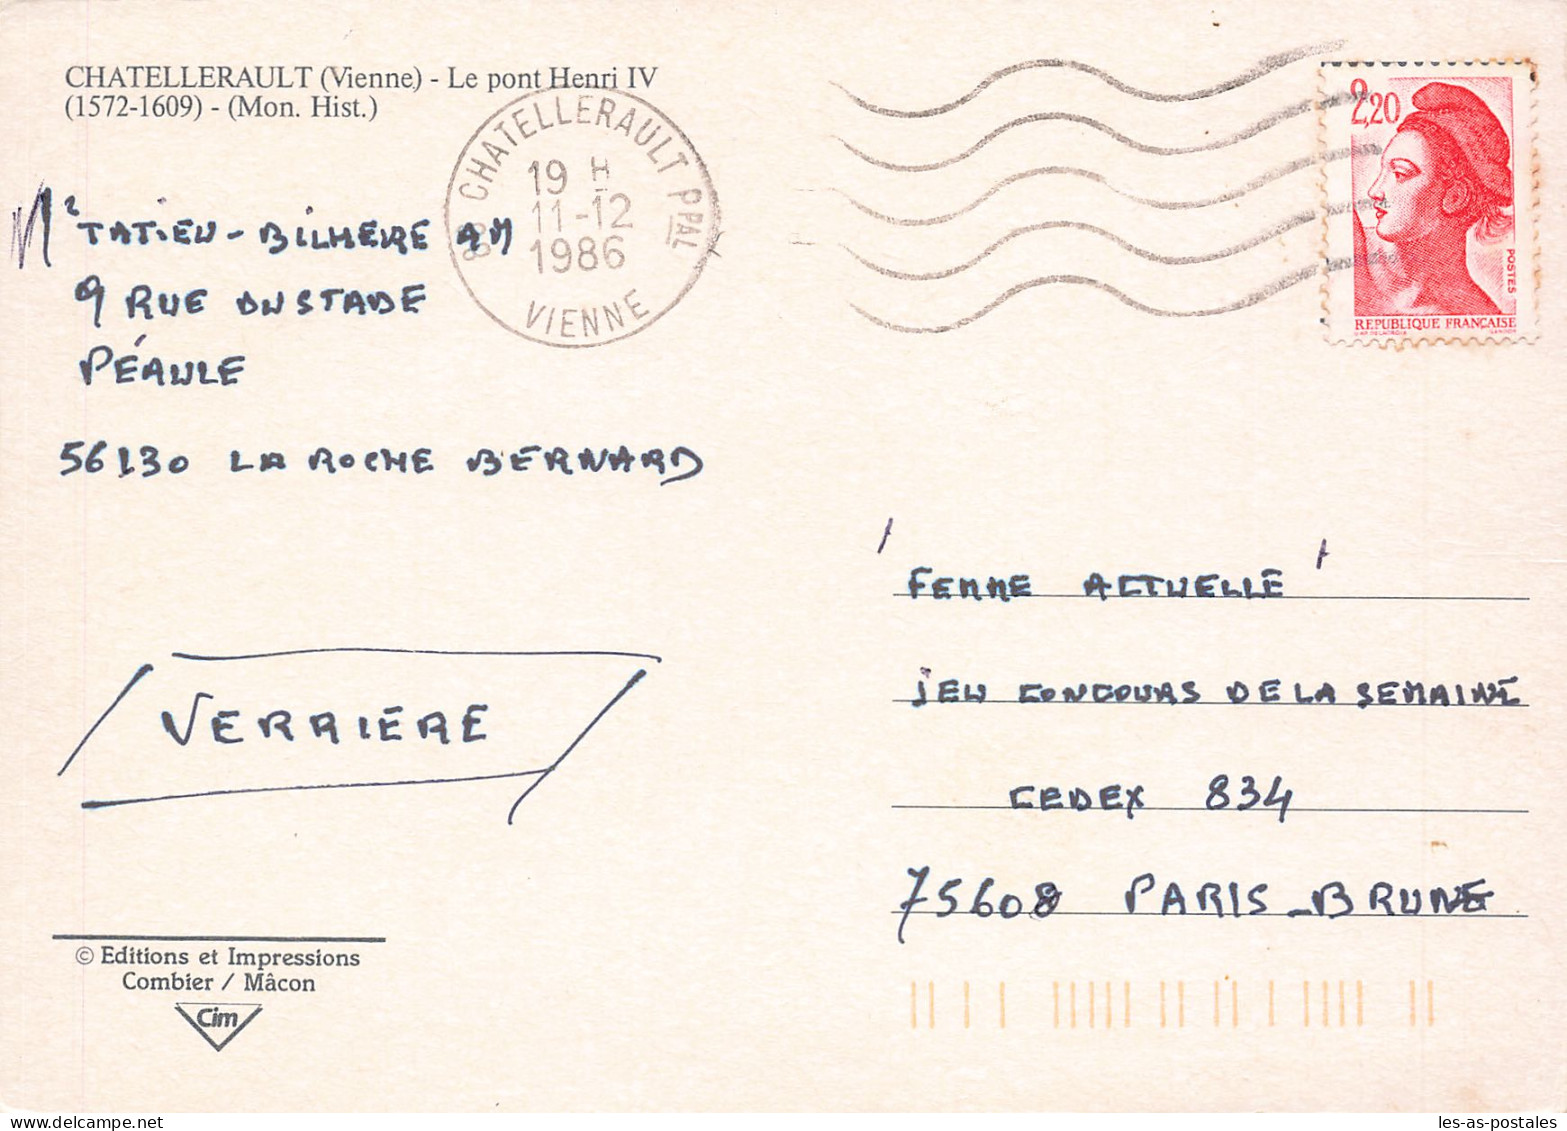 CHATELLERAULT (Vienne) - Le pont Henri IV
(1572-1609) - (Mon. Hist.)
86 CHATELLERAULT PPAL
19 H
11-12
1986
VIENNE
2,20
POSTES
REPUBLIQUE FRANÇAISE
TATIEU - BILHERE AM
9 RUE DU STADE
PÉAULE
56130 LA ROCHE BERNARD
VERRIERE
' FEMME ACTUELLE '
JEU CONCOURS DE LA SEMAINE
CEDEX 834
75608 PARIS - BRUNE
© Editions et Impressions
Combier / Mâcon
Cim
les-as-postales